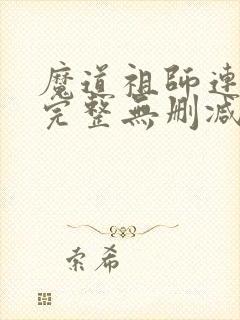 魔道祖師連
完整無刪減
索希